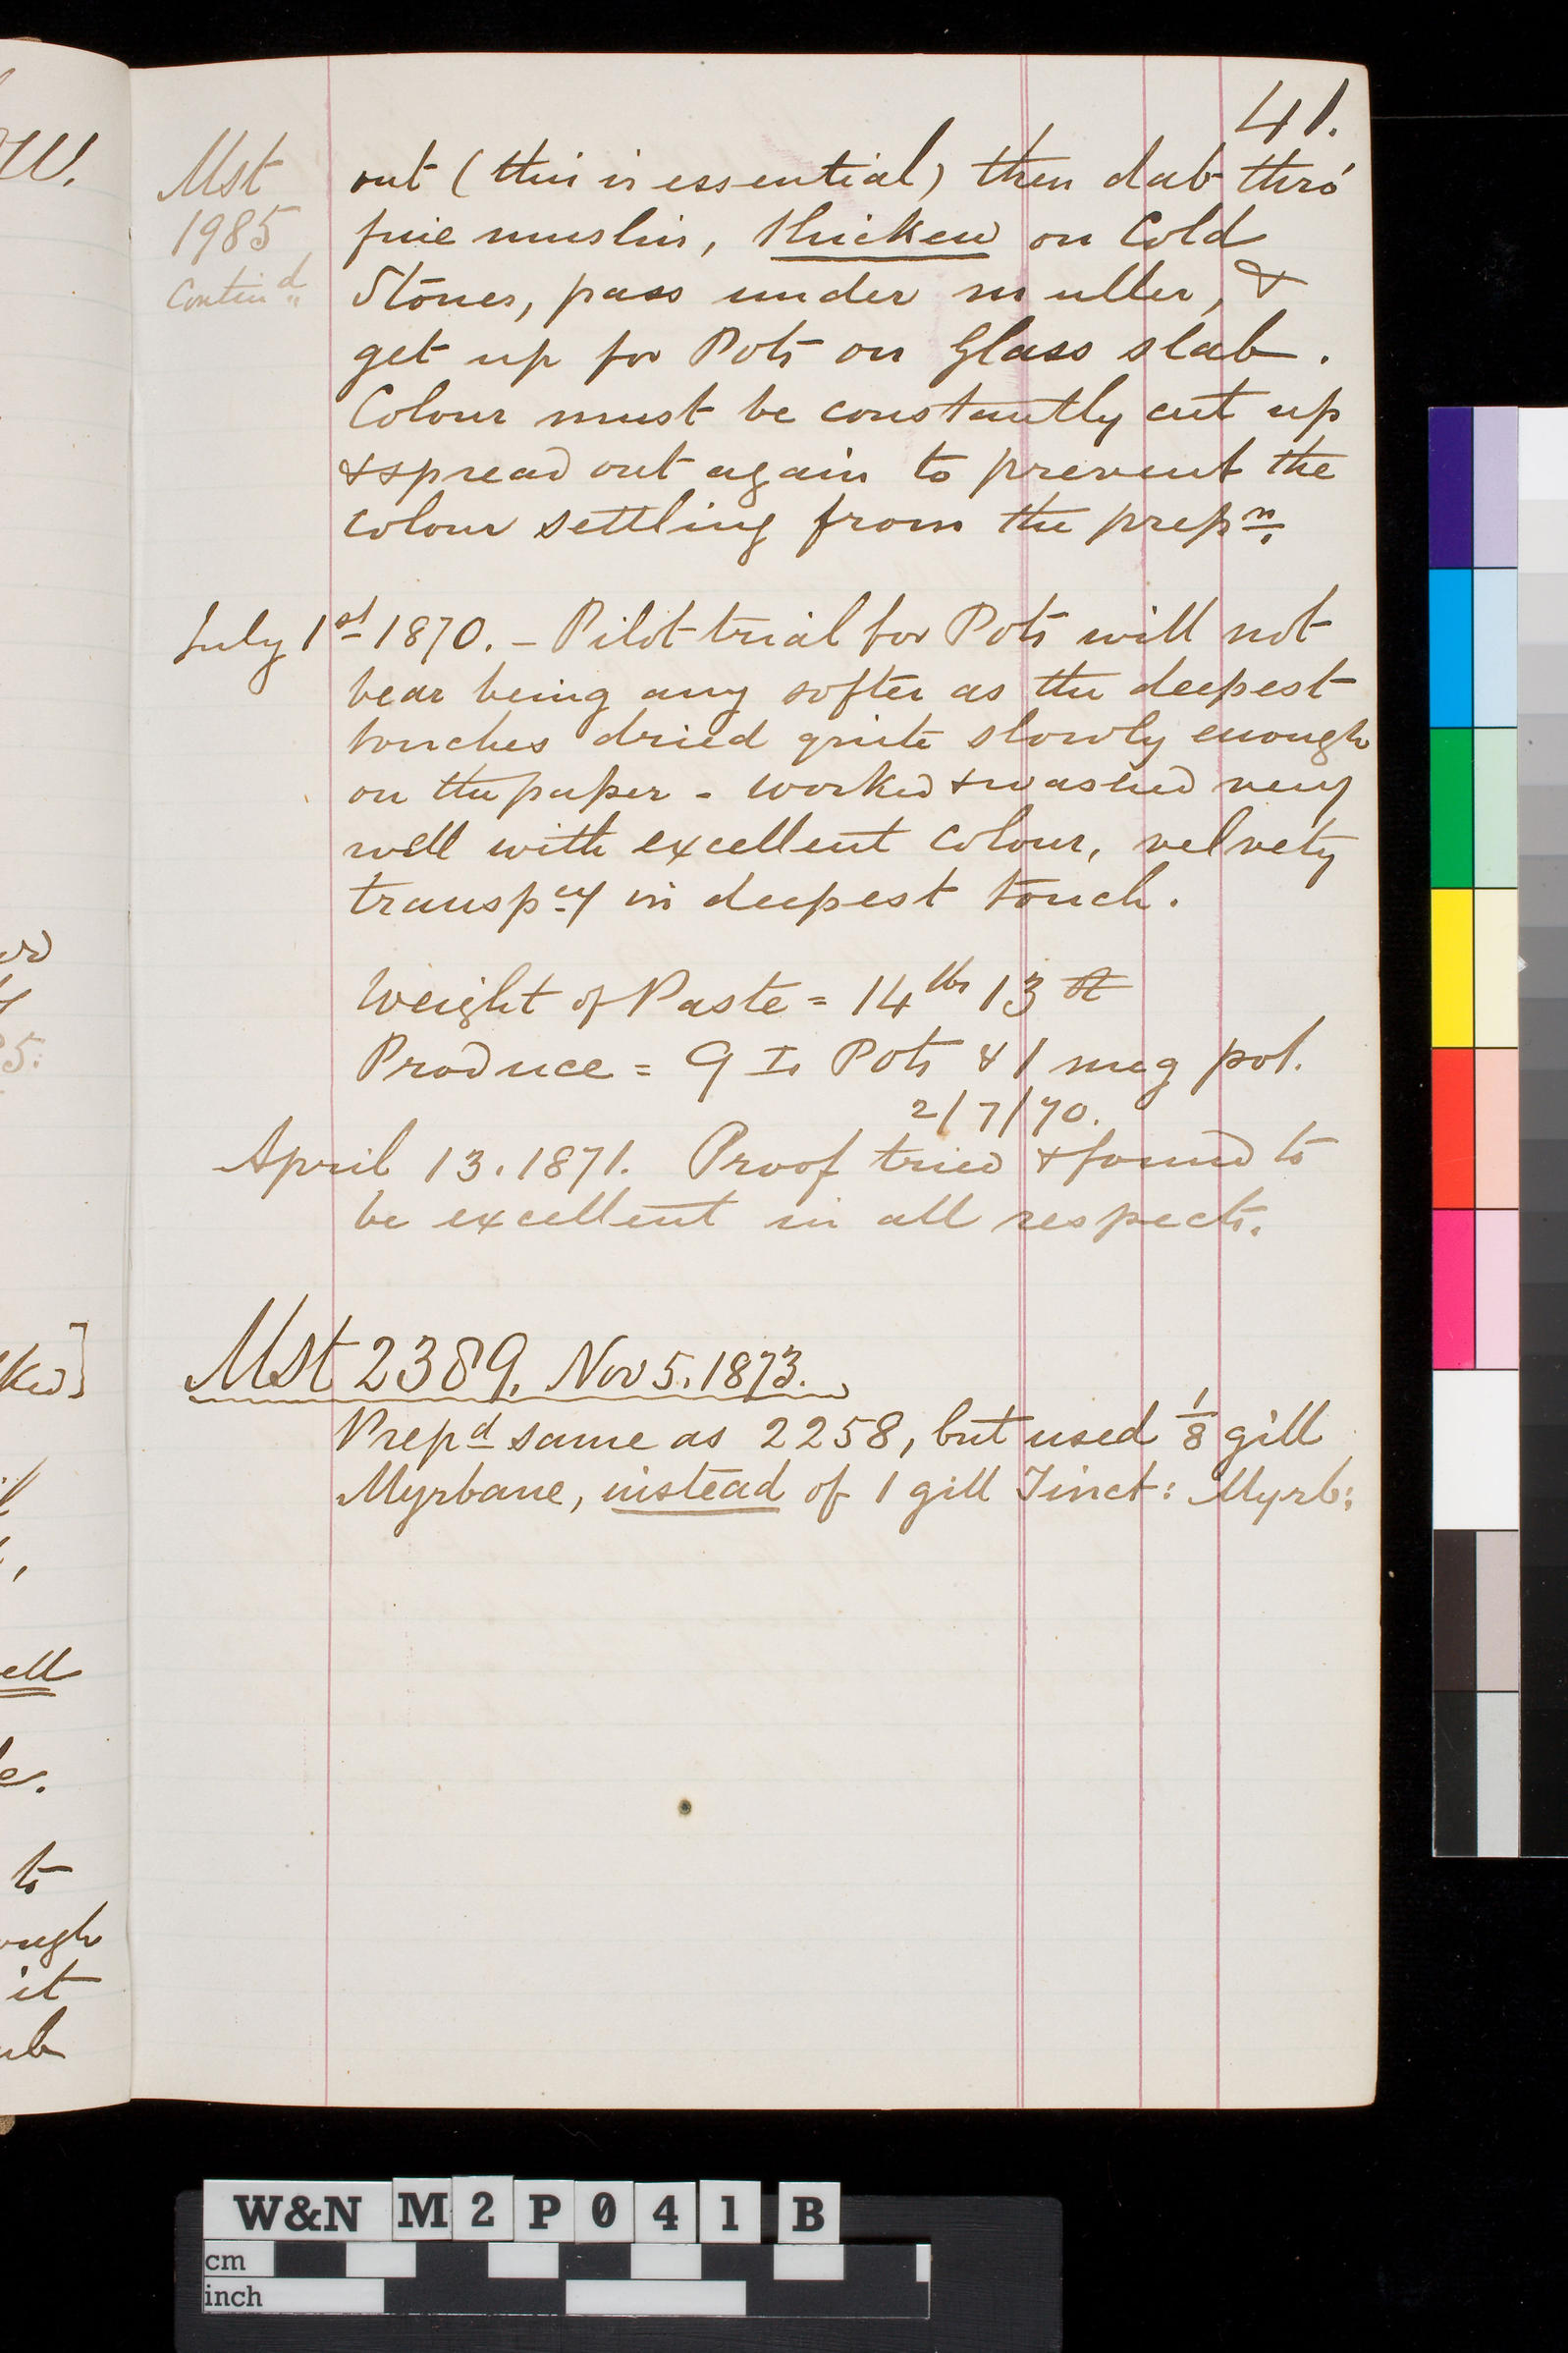 41.
Mst
1985
Contin.d
out (this is essential) then dab thro'
fine muslin, thicken on Cold
Stones, pass under muller, &
get up for Pots on Glass slab.
Colour must be constantly cut up
& spread out again to prevent the
colour settling from the prepn.
July 1st 1870. - Pilot trial for Pots will not
bear being any softer as the deepest
touches dried quite slowly enough
on the paper - worked & washed very
well with excellent colour, velvety
transpcy in deepest touch.
Weight of Paste = 14 lbs 13
Produce = 9 Pots & 1 mug pot.
2/7/70.
April 13. 1871. Proof tried & found to
be excellent in all respects.
Mst 2389. Nov 5. 1873.
Prepd same as 2258, but used 1/8 gill
Myrbane, instead of 1 gill Tinct: Myrb:
W.
5.
ked]
ell
e.
to
ough
it
ub
W&N M2P041 B
cm
inch